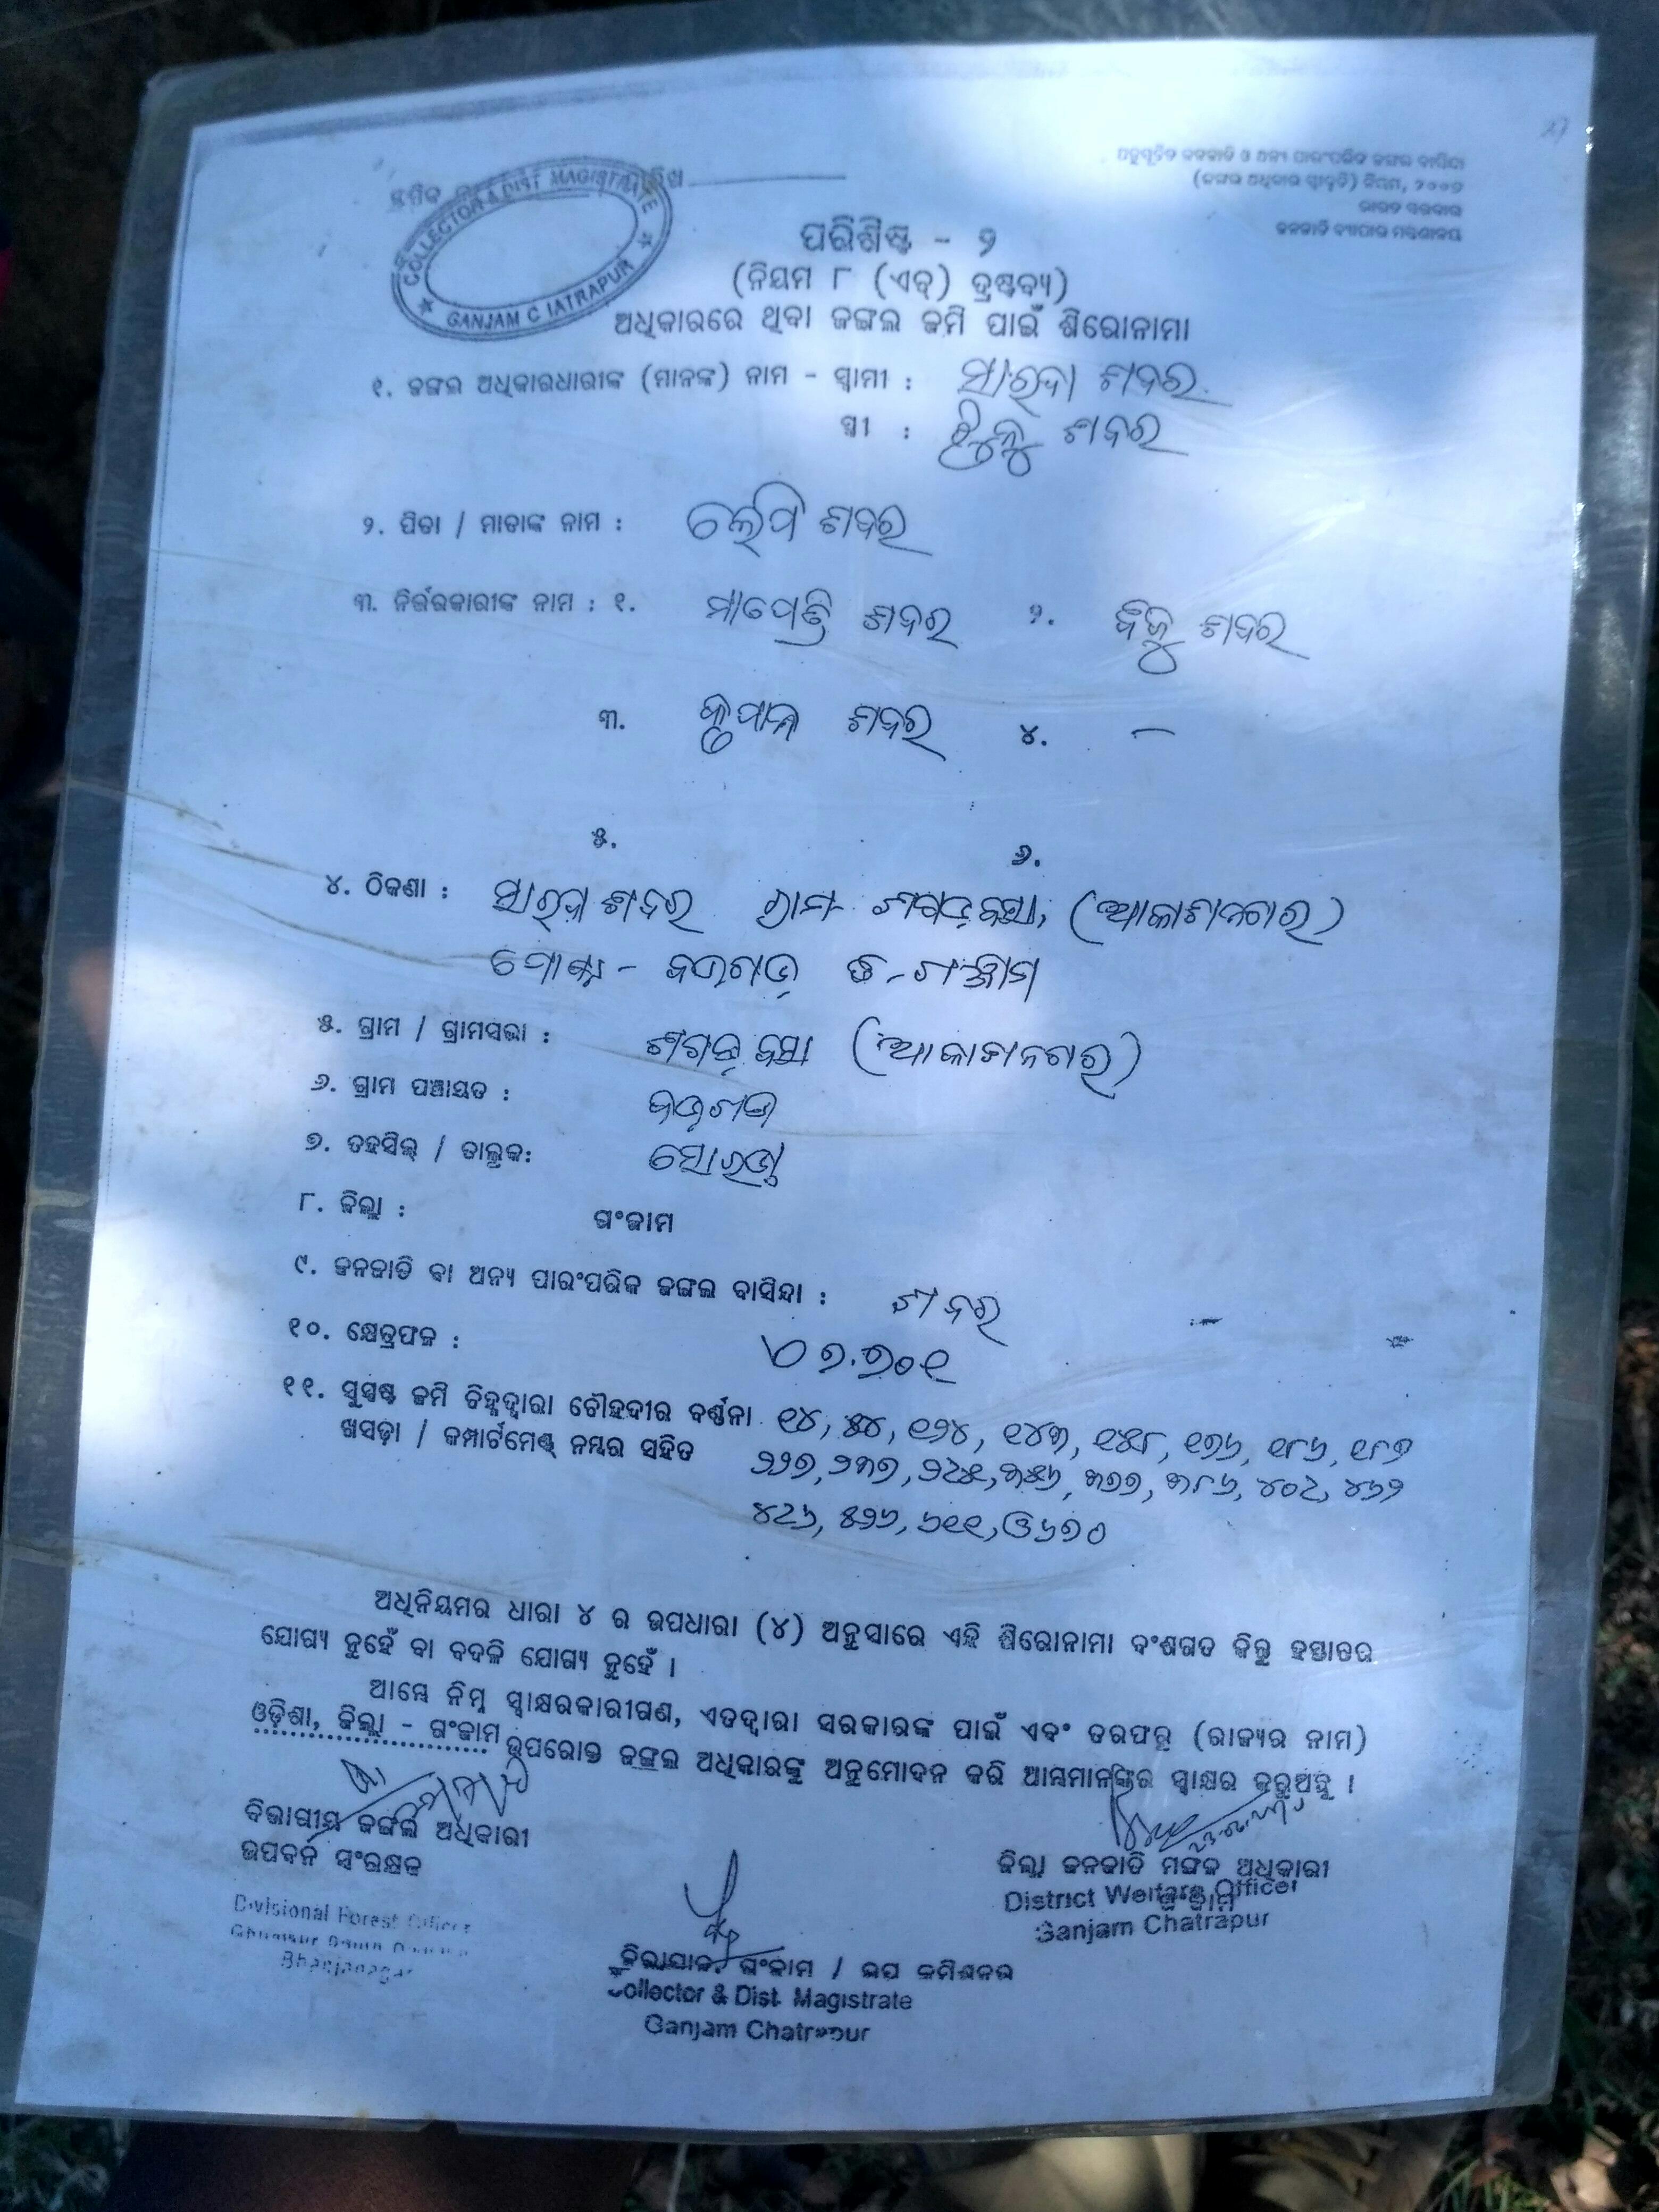 ଅନୁସୂଚିତ ଜନଜାତି ଓ ଅନ୍ୟ ପାରଂପରିକ ଜଙ୍ଗଲ ବାସିନ୍ଦା
(ଜଙ୍ଗଲ ଅଧିକାର ସ୍ୱୀକୃତି) ନିୟମ, ୨୦୦୭
ଭାରତ ସରକାର
ଜନଜାତି ବ୍ୟାପାର ମନ୍ତ୍ରଣାଳୟ
କ୍ରମିକ
COLLECTOR & DIST MAGISTRATE
GANJAM C IATRAPUR
ପରିଶିଷ୍ଟ - ୨
(ନିୟମ ୮ (ଏଚ୍) ଦ୍ରଷ୍ଟବ୍ୟ)
ଅଧିକାରରେ ଥିବା ଜଙ୍ଗଲ ଜମି ପାଇଁ ଶିରୋନାମା
୧. ଜଙ୍ଗଲ ଅଧିକାରଧାରୀଙ୍କ (ମାନଙ୍କ) ନାମ - ସ୍ୱାମୀ : ସାରଦା ଶବର
ସ୍ତ୍ରୀ : ଶବର
୨. ପିତା / ମାତାଙ୍କ ନାମ : ଶବର
୩. ନିର୍ଭରକାରୀଙ୍କ ନାମ : ୧. ଶବର ୨. ବିଜୁ ଶବର
୩. ଶବର ୪. —
୫. ୬.
୪. ଠିକଣା : ଶବର ଗ୍ରାମ (ଆକାଶନଗର)
ପୋଷ୍ଟ - ବଡ଼ଗଡ଼ ଜି-ଗଞ୍ଜାମ
୫. ଗ୍ରାମ / ଗ୍ରାମସଭା : (ଆକାଶନଗର)
୬. ଗ୍ରାମ ପଞ୍ଚାୟତ : ବଡ଼ଗଡ଼
୭. ତହସିଲ୍ / ତାଲୁକ: ସୋରଡ଼ା
୮. ଜିଲ୍ଲା : ଗଂଜାମ
୯. ଜନଜାତି ବା ଅନ୍ୟ ପାରଂପରିକ ଜଙ୍ଗଲ ବାସିନ୍ଦା : ଶବର
୧୦. କ୍ଷେତ୍ରଫଳ :
୧୧. ସୁସ୍ପଷ୍ଟ ଜମି ଚିହ୍ନଦ୍ୱାରା ଚୌହଦୀର ବର୍ଣ୍ଣନା ୧୪, ୫୪, ୧୨୪, ୧୪୩, ୧୫୮, ୧୭୬, ୧୮୬, ୧୮୭
ଖସଡ଼ା / କମ୍ପାର୍ଟମେଣ୍ଟ ନମ୍ବର ସହିତ ୨୨୭, ୨୩୭, ୨୯୫, ୩୫୬, ୩୭୭, ୩୮୬, ୪୦୯, ୪୬୨
୪୯୬, ୫୨୬, ୬୧୧, ଓ ୬୭୦
ଅଧିନିୟମର ଧାରା ୪ ର ଉପଧାରା (୪) ଅନୁସାରେ ଏହି ଶିରୋନାମା ବଂଶଗତ କିନ୍ତୁ ହସ୍ତାନ୍ତର
ଯୋଗ୍ୟ ନୁହେଁ ବା ବଦଳି ଯୋଗ୍ୟ ନୁହେଁ ।
ଆମ୍ଭେ ନିମ୍ନ ସ୍ୱାକ୍ଷରକାରୀଗଣ, ଏତଦ୍ୱାରା ସରକାରଙ୍କ ପାଇଁ ଏବଂ ତରଫରୁ (ରାଜ୍ୟର ନାମ)
ଓଡ଼ିଶା, ଜିଲ୍ଲା - ଗଂଜାମ ଉପରୋକ୍ତ ଜଙ୍ଗଲ ଅଧିକାରଙ୍କୁ ଅନୁମୋଦନ କରି ଆମ୍ଭମାନଙ୍କର ସ୍ୱାକ୍ଷର କରୁଅଛୁ ।
ବିଭାଗୀୟ ଜଙ୍ଗଲ ଅଧିକାରୀ
ଉପବନ ସଂରକ୍ଷକ
Divisional Forest Officer
Bhanjanagar
ଜିଲ୍ଲା ଜନଜାତି ମଙ୍ଗଳ ଅଧିକାରୀ
District Welfare Officer
Ganjam Chatrapur
ଜିଲ୍ଲାପାଳ, ଗଂଜାମ / ଉପ କମିଶନର
Collector & Dist. Magistrate
Ganjam Chatrapur